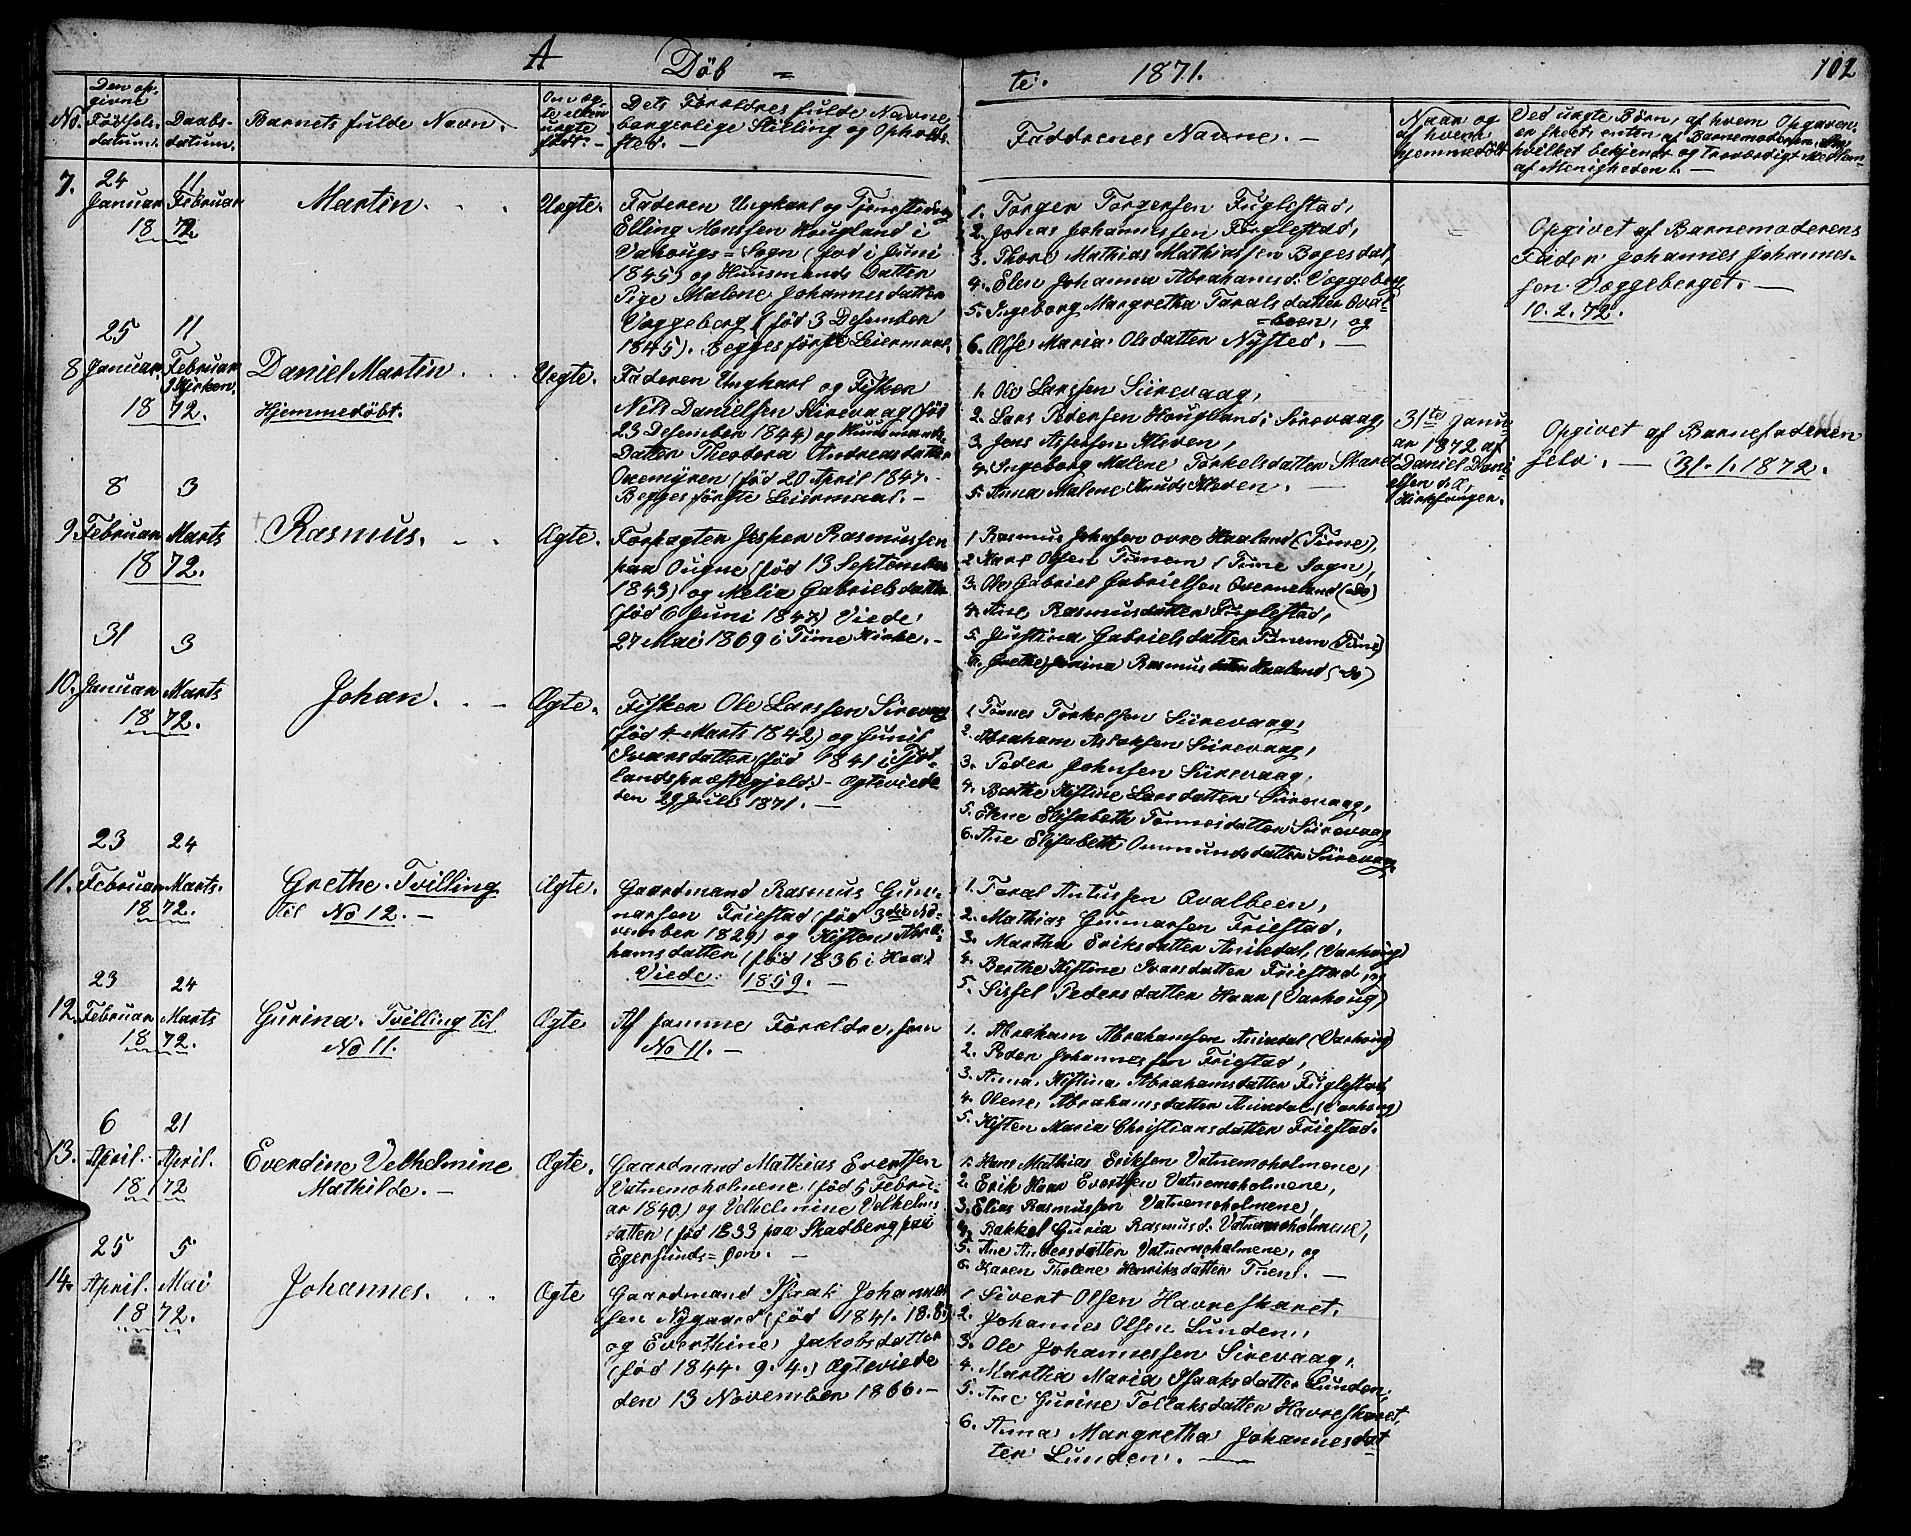 A
Döb =
te. 1871.
102
No.
Den op-
givne
Födsels-
datum.
Daabs-
datum.
Barnets fulde Navn. -
Om æg-
te eller
uægte
født. -
Dets Forældres fulde Navne,
borgerlige Stilling og Opholds-
sted. -
Faddrenes Navne. -
Naar og
af hvem
hjemmedöbt
Ved uægte Børn, af hvem Opgaven
er skeet, enten af Barnemoderen, eller
hvilket bekjendt og troværdigt Medlem
af Menigheden. -
7.
24
Januar
18
11
Februar
72
Martin.
Uægte.
Faderen Ungkarl og Tjenestedreng
Elling Monssen Hougland i
Varhougs = Sogn (fød i Juni
1845) og Huusmands Datter
Pige Malene Johannesdatter
Væggeberg (fød 3 Desember
1845). Begges første Leiermaal.
1. Torger Torgersen Fuglestad,
2. Jonas Johannessen Fuglestad,
3. Thore Mathias Mathiassen Bogesdal,
4. Elen Johanna Abrahamsd. Væggeberg
5. Ingeborg Margretha Taralsdatter Oval-
=been, og
6. Else Maria Olsdatter Nysted. -
Opgivet af Barnemoderens
Fader Johannes Johannes-
sen Væggeberget. -
10.2.72.
8
25
Januar.
18
11
Februar
i Kirken.
72.
Daniel Martin.
Hjemmedøbt.
Uægte.
Faderen Ungkarl og Fisker
Nils Danielsen Sirevaag (fød
23 Desember 1844) og Huusmands
Datter Theodora Andreasdatter
Ovemyren (fød 20 April 1847. -
Begges første Leiermaal. -
1. Ole Larssen Siirevaag,
2. Lars Pedersen Hougland i Sirevaag,
3. Jens Assersen Kleven,
4. Ingeborg Malene Torkelsdatter Skaret
5. Anna Malene Knuds Kleven. -
31te Janu-
ar 1872 af
Daniel Dani
elsen
Kirksanger.
Opgivet af Barnefaderen
selv. - 31.1.1872.
9.
8
Februar
18
3
Marts
72.
Rasmus.
Ægte.
Forpagter Jesper Rasmussen
paa Ougne (fød 13 September
1843) og Melia Gabrielsdatter
(fød 6 Juni 1847) Viede
27 Mai 1869 i Time Kirke. -
1 Rasmus Johnsen ovre Haaland (Time),
2 Karl Olsen Tunem (Time Sogn),
3. Ole Gabriel Gabrielsen Overneland (do)
4. Ane Rasmusdatter Fuglestad,
5. Justina Gabrielsdatter Tunem (Time)
6. Grethe Jonina Rasmusdatter Haaland (do)
10.
31
Januar
18
3
Marts
72.
Johan.
Ægte.
Fisker Ole Larssen Sirevaag
(fød 4 Marts 1842) og Gunil
Ivarsdatter (fød 1841 i Fjot-
lands præstegjeld) - Ægteviede
den 29 Juli 1871. -
1. Tønnes Torkelsen Siirevaag,
2. Abraham Aslaksen Siirevaag,
3. Peder Johnsen Siirevaag,
4. Berthe Kistine Larsdatter Siirevaag,
5. Elene Elisabeth Tønnesdatter Siirevaag
6. Ane Elisabeth Ommundsdatter Siirevaag
11.
23
Februar
18
24
Marts.
72.
Grethe. Tvilling
til No 12. -
Ægte.
Gaardmand Rasmus Gun-
narsen Friestad (fød 3die No-
vember 1829) og Kisten Abra-
hamsdatter (fød 1836 i Haar)
Viede: 1859. -
1. Taral Antussen Ovalbeen,
2. Mathias Gunnarsen Friestad,
3. Martha Eriksdatter Aniedal, (Varhoug)
4. Berthe Kistine Ivarsdatter Friestad, og
5. Sissel Pedersdatter Haar (Varhoug)
12.
23
Februar
18
24
Marts
72.
Gurina. Tvilling til
No 11.
Ægte
Af samme Foreldre, som
No 11. -
1. Abraham Abrahamsen Aniedal (Varhoug)
2. Peder Johannessen Friestad,
3. Anna Kistina Abrahamsdatter Fuglestad
4. Olene Abrahamsdatter Aniedal (Varhoug)
5. Kisten Maria Christiansdatter Friestad.
13.
6
April.
18
21
April.
72
Everdine Velhelmine
Mathilde. -
Ægte.
Gaardmand Mathias Evertsen
Vatnemoholmene (fød 5 Febru-
ar 1840) og Velhelmine Velhelms-
datter (fød 1833 paa Skadberg paa
Egersunds = øen. -
1. Hans Mathias Eriksen Vatnemoholmene,
2. Erik Haar Evertsen Vatnemoholmene,
3. Elias Rasmussen Vatnemoholmene,
4. Rakkel Guria Rasmusd. Vatnemoholmene,
5. Ane Andersdatter Vatnemoholmene, og
6. Karen Tholene Henriksdatter Tuen. -
14.
25
April.
18
5
Mai
72.
Johannes.
Ægte
Gaardmand Isaak Johannes
sen Nygaard (fød 1841. 18.8)
og Everthine Jakobsdatter
(fød 1844. 9. 4.) Ægteviede
den 13 November 1866. -
1 Sivert Olsen Havreskaret.
2. Johannes Olsen Lunden,
3. Ole Johannessen Sirevaag,
4. Martha Maria Isaaksdatter Lunden,
5. Ane Gurine Tollaksdatter Havreskaret,
6. Anna Margretha Johannesdat
ter Lunden. -